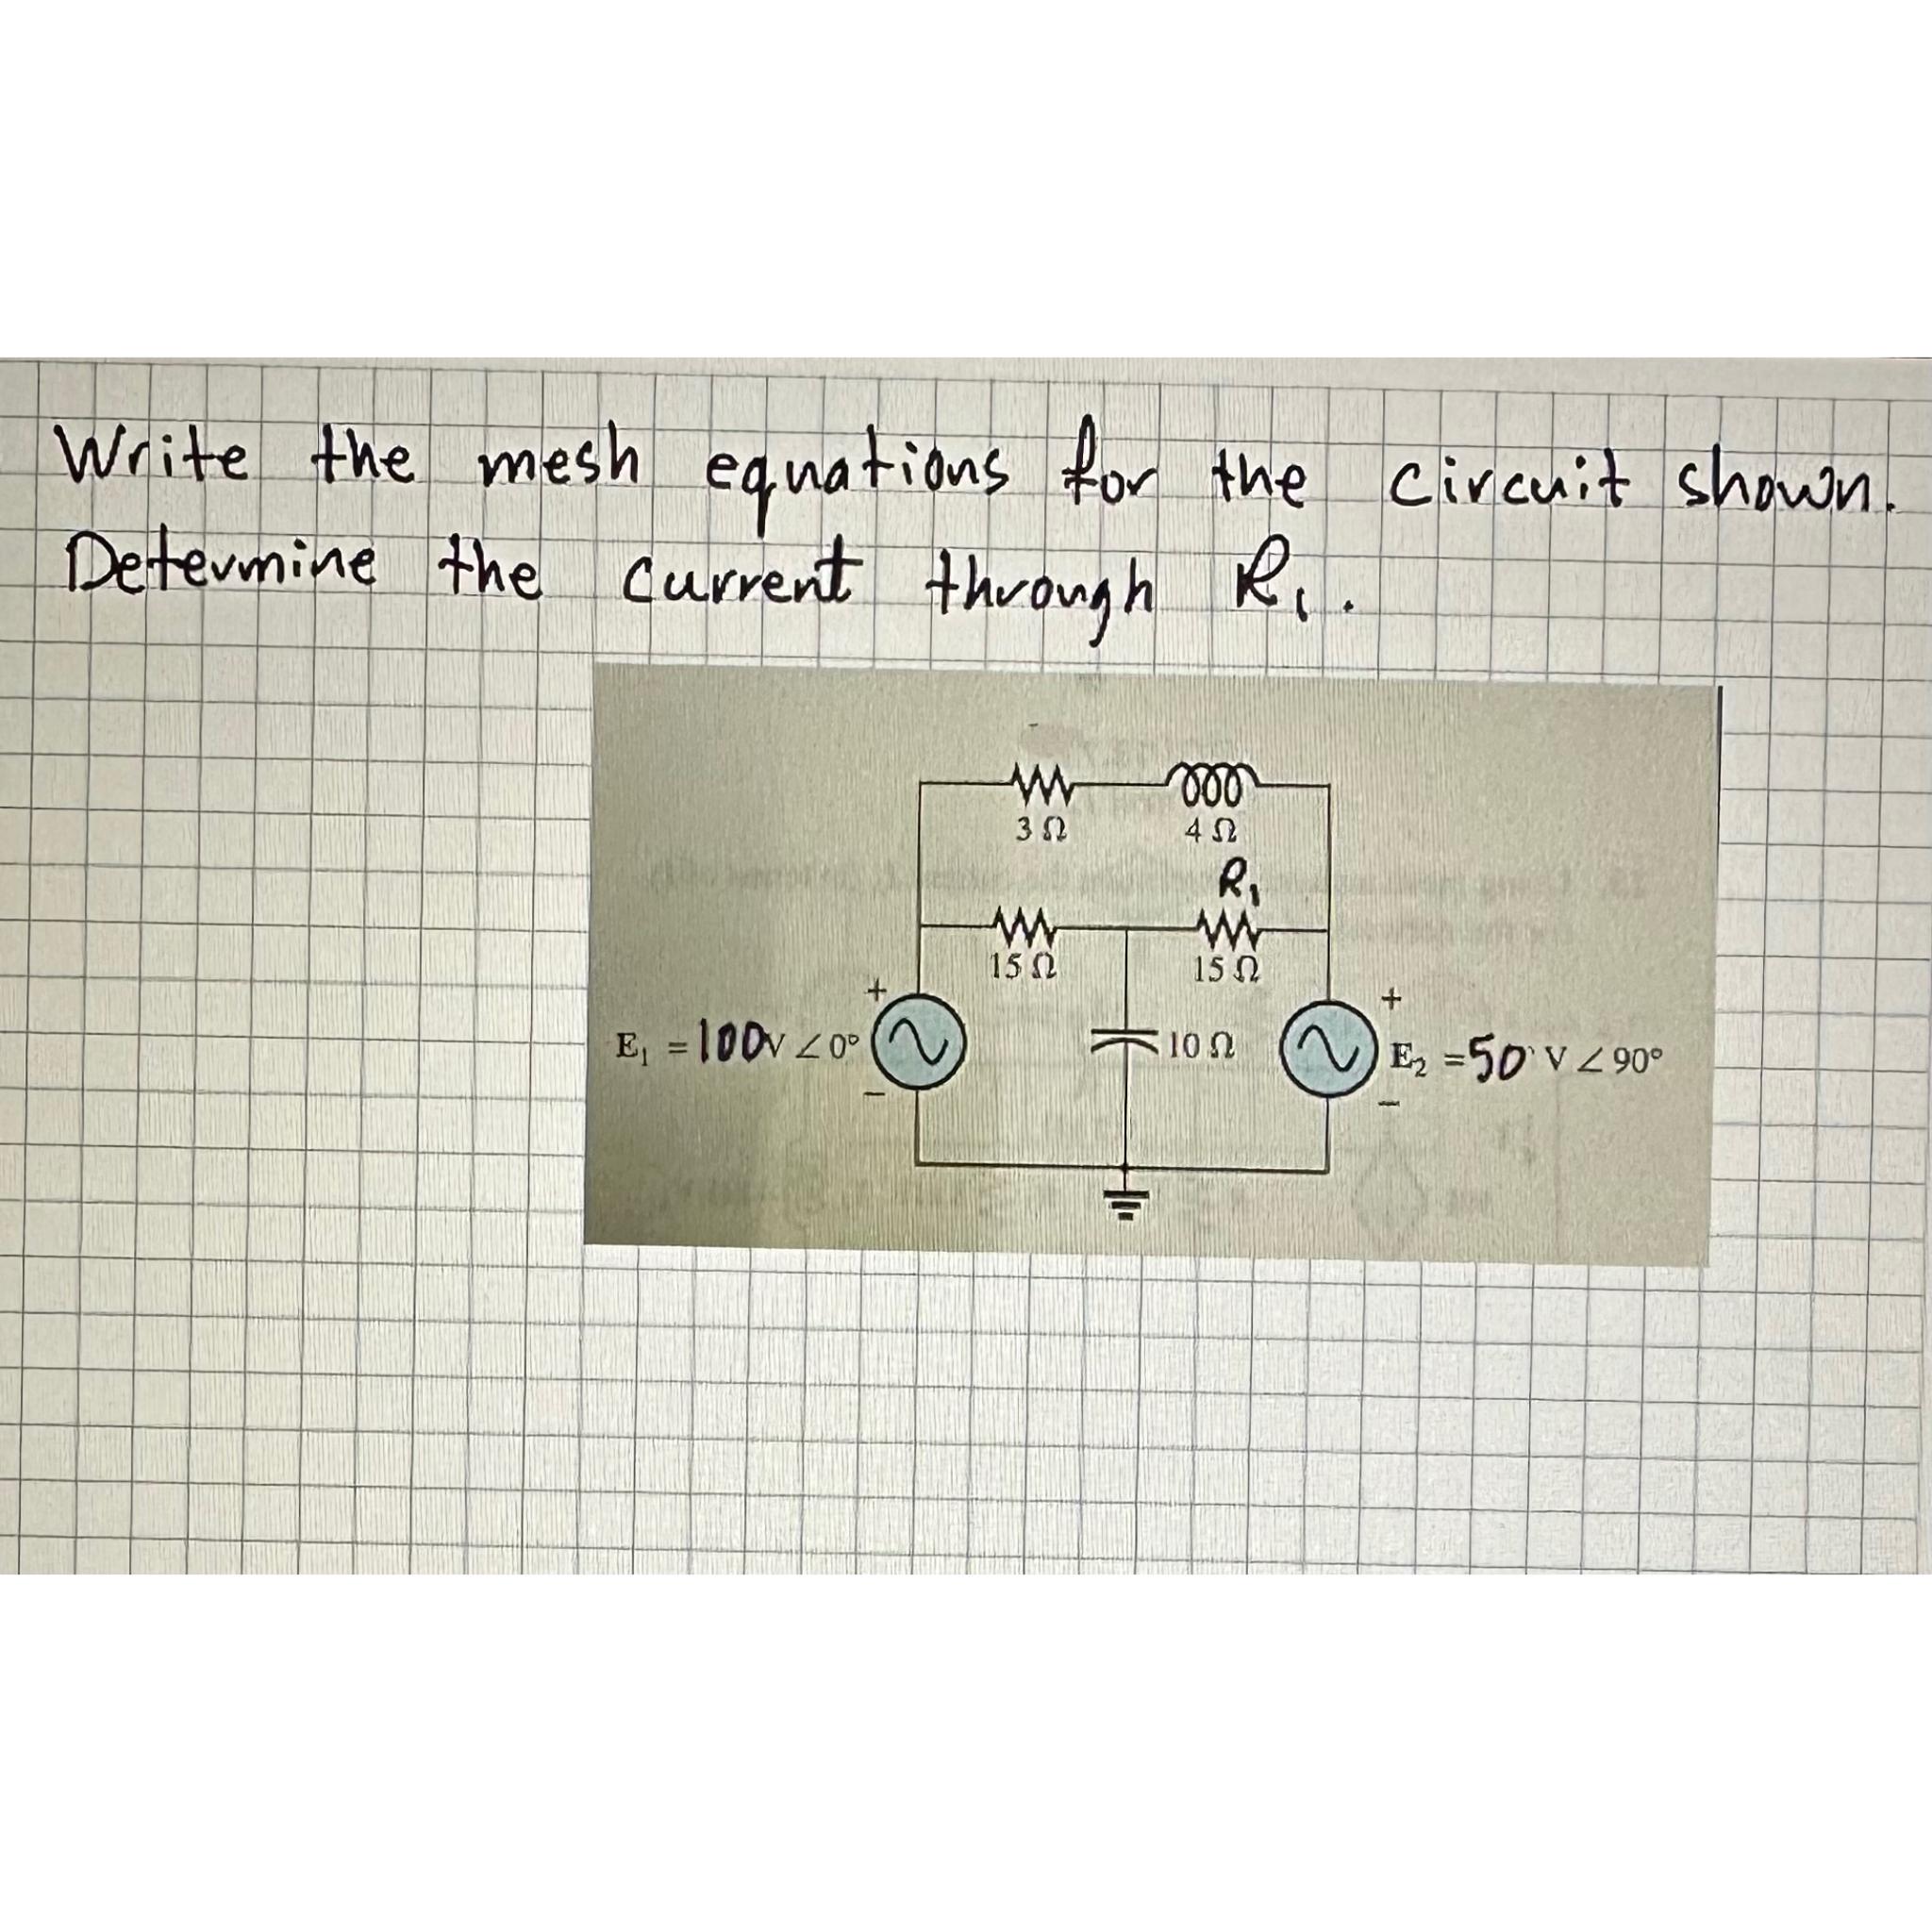 Write the mesh equations for the circuit shown.
Determine the current through R₁.
3 Ω
4 Ω
R₁
15 Ω
15 Ω
+
+
E₁ = 100V ∠0°
10 Ω
E₂ = 50 V ∠90°
−
−